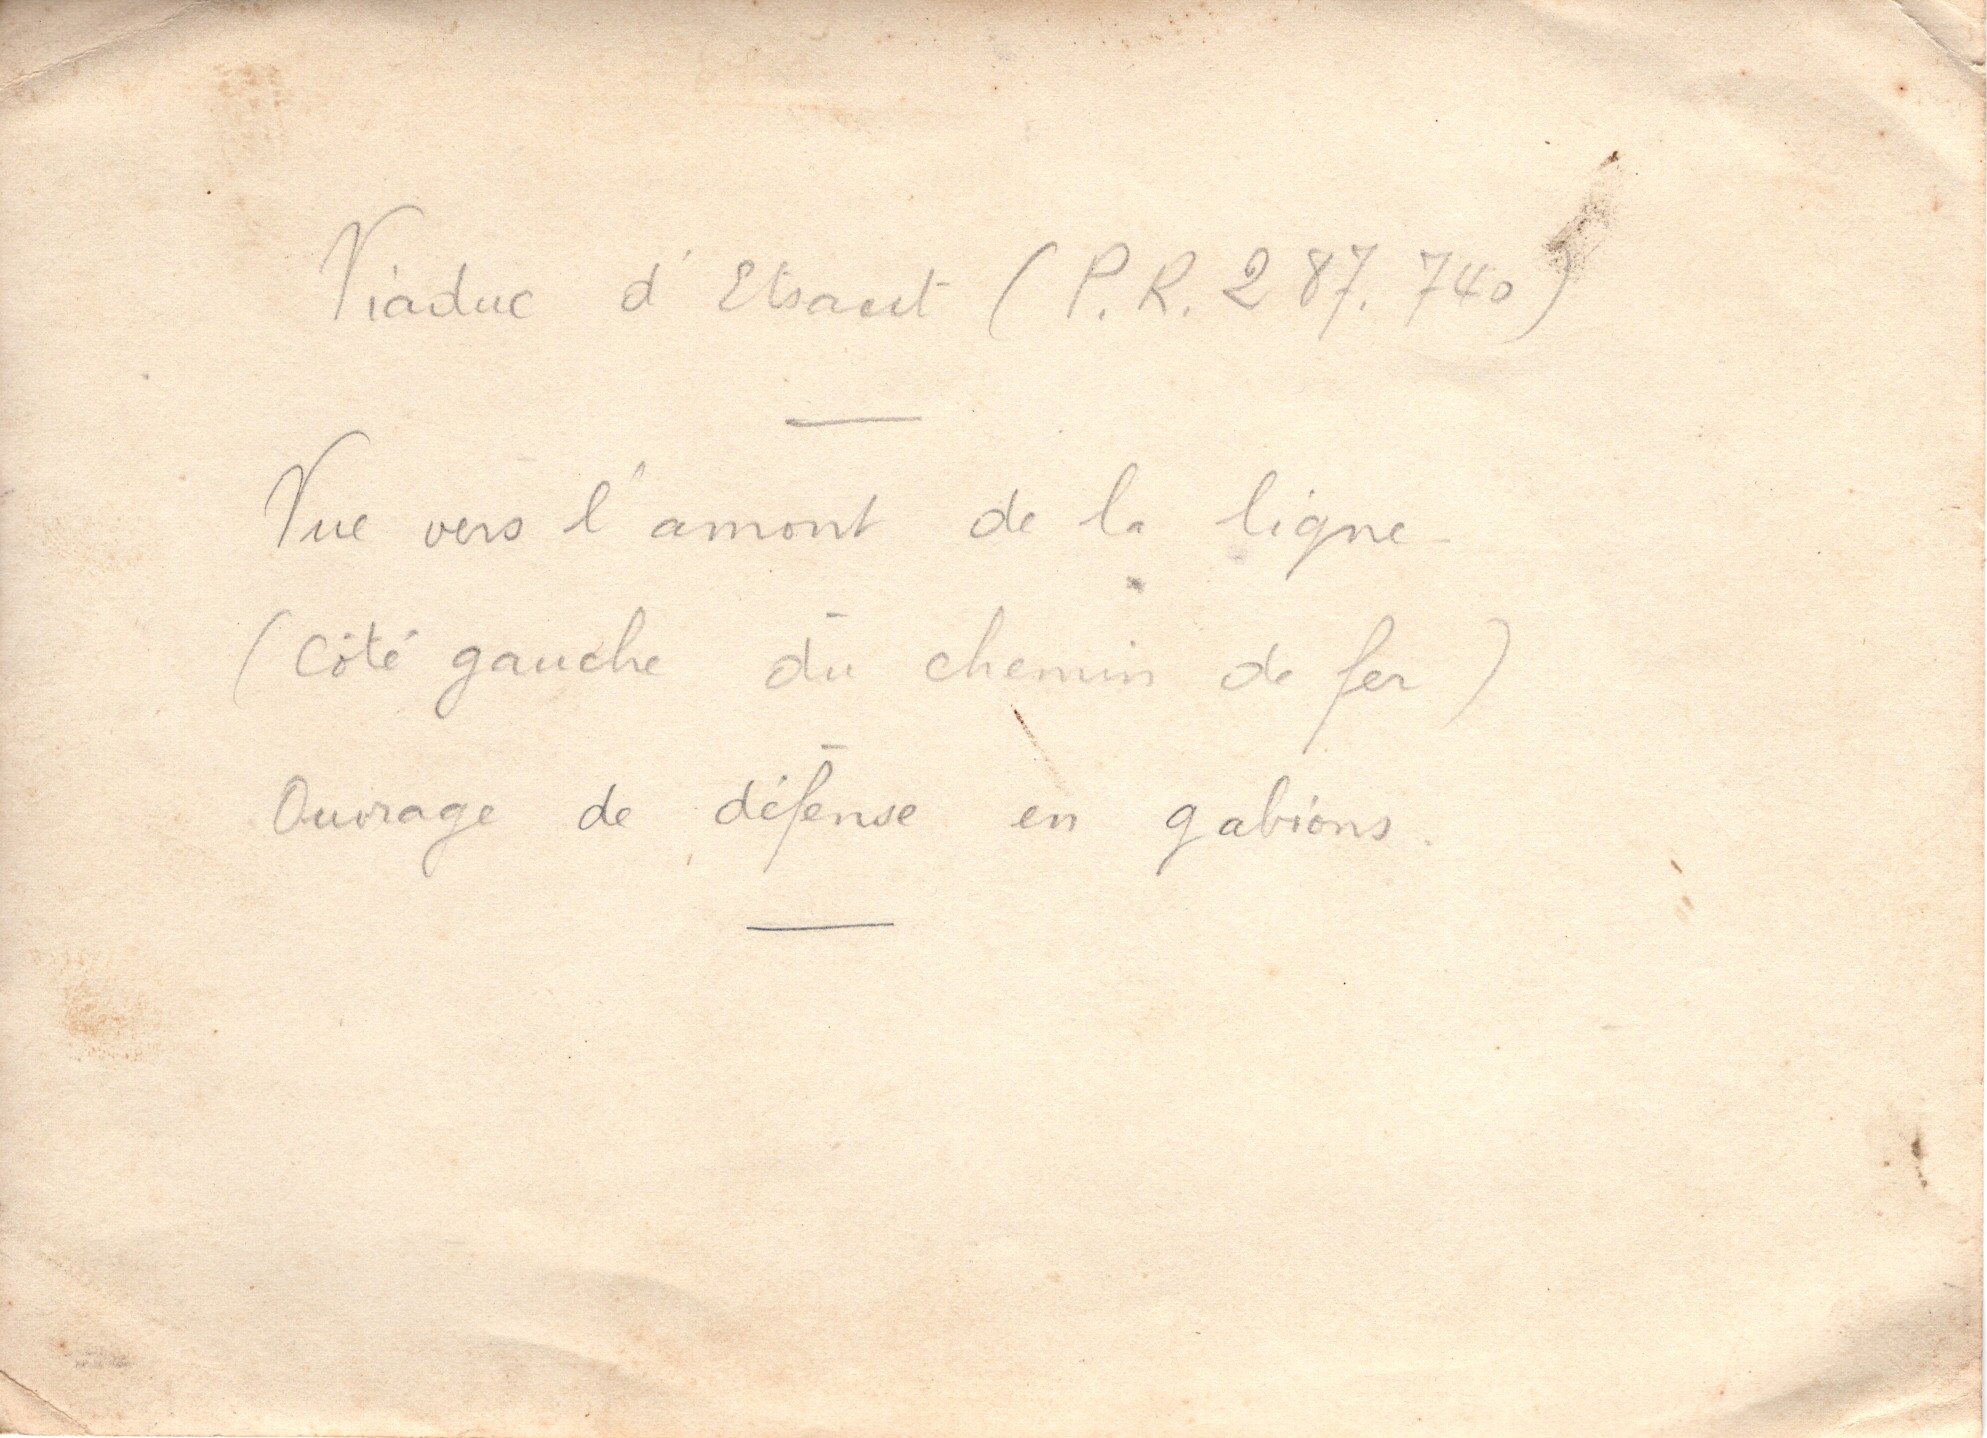 Viaduc d'Etsaut (P.R. 287.740)
Vue vers l'amont de la ligne
(Côté gauche du chemin de fer)
Ouvrage de défense en gabions.